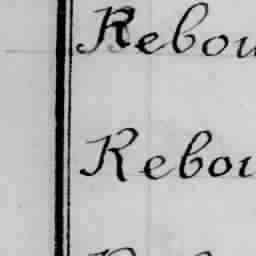 Rebou
Rebou